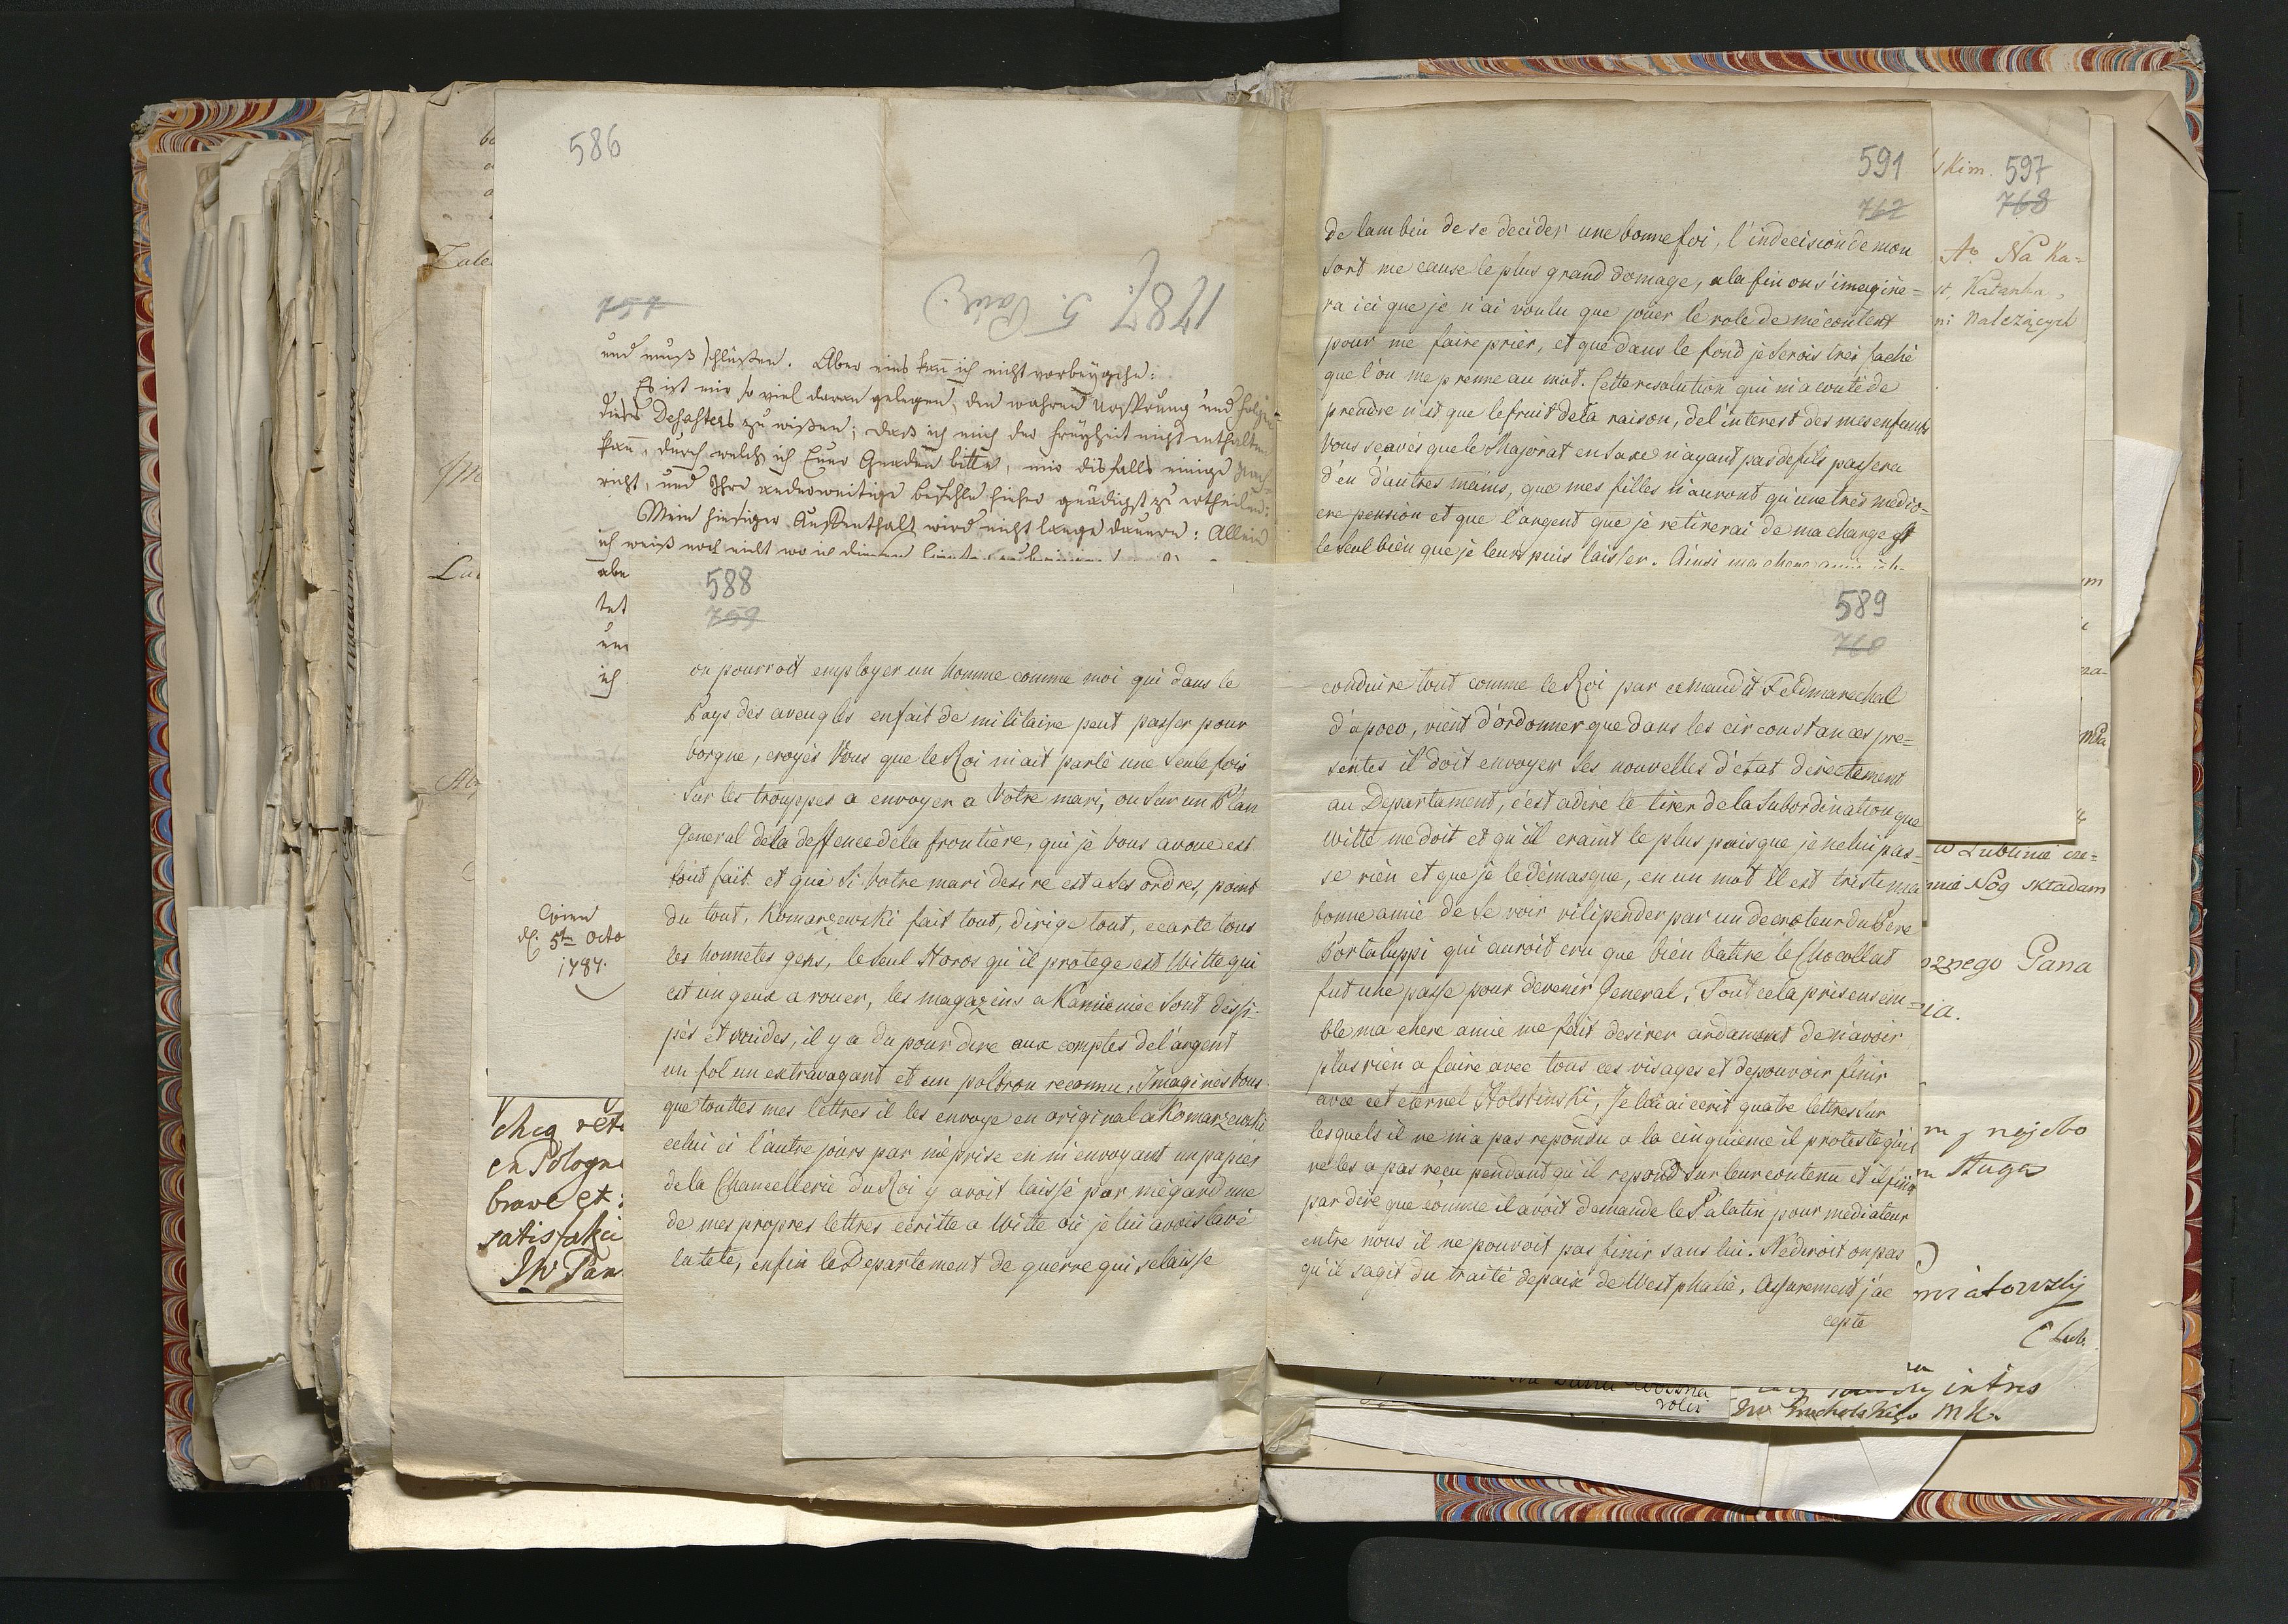 586
1787. 5. Paźd.
757
und muß schlüßen. Aber eins kan ich nicht vorbeÿgehn:
Es ist mir so viel daran gelegen, den wahren Ursprung und Folgen
dieses Desasters zu wißen; daß ich mich der Freÿheit nicht enthalten
kan, durch welche ich Euer Gnaden bitte, mir disfalls einige Nach-
richt, und Ihre anderweitige Befehle hieher gnädigst zu ertheilen:
Mein hiesiger Auffenthalt wird nicht lange dauern: Allein
ich weiß noch nicht wo ich
abe
tet
un
ich
d. 5ten Octo
1787.
cheq
en Pologn
brave et
satisfakci
JW Pan
588
759
on pourroit employer un homme comme moi qui dans le
Pays des aveugles en fait de militaire peut passer pour
borgne, croyés Vous que le Roi m'ait parlé une seule fois
sur les trouppes a envoyer a Votre mari, ou sur un Plan
General de la deffence de la frontiere, qui je vous avoue est
tout fait et qui si Votre mari desire est a ses ordres, point
du tout, Komarzewski fait tout, dirige tout, ecarte tous
les honnetes gens, le seul Heros qu'il protege est Witte qui
est un geux a rouer, les magazins a Kamieniec sont dissi-
pés et vuides, il y a du pour dire aux comptes de l'argent
un fol un extravagant et un poltron reconnu. Imaginés Vous
que touttes mes lettres il les envoye en original a Komarzewski
celui ci l'autre jours par méprise en m'envoyant un papier
de la Chancellerie du Roi y avoit laissé par mégard une
de mes propres lettres écritte a Witte où je lui avois lavé
la tete, enfin le Departement de guerre qui se laisse
591
762
de lambin de se decider une bonne foi, l'indecision de mon
sort me cause le plus grand domage, a la fin on s'imagine-
ra ici que je n'ai voulu que jouer le role de mécontent
pour me faire prier, et que dans le fond je serois très faché
que l'on me prenne au mot. Cette resolution qui m'a couté de
prendre n'est que le fruit de la raison, de l'interest des mes enfants
Vous sçavés que le Majorat en Saxe n'ayant pas de fils passera
d'en d'autres mains, que mes filles n'auront qu'une très medio-
cre pension et que l'argent que je retirerai de ma charge est
le seul bien que je leurs puis laisser. Ainsi ma chere amie
589
760
conduire tout comme le Roi par ce maudit Feldmarechal
d'apoco, vient d'ordonner que dans les circonstances pre-
sentes il doit envoyer ses nouvelles d'etat directement
au Departament, c'est a dire le tirer de la subordination que
Witte me doit et qu'il craint le plus puisque je ne lui pas-
se rien et que je le démasque, en un mot il est triste ma
bonne amie de se voir vilipender par un decroteur du Pere
Portaluppi qui auroit cru que bien battre le Chocollat
fut une passe pour devenir General. Tout cela pris ensem-
ble ma chere amie me fait desirer ardament de n'avoir
plus rien a faire avec tous ces visages et de pouvoir finir
avec cet eternel Holstinski, Je lui ai ecrit quatre lettres sur
lesquels il ne m'a pas repondu a la cinquieme il proteste qu'il
ne les a pas reçu pendant qu'il repond sur leur contenu et il finit
par dire que comme il avoit demande le Palatin pour mediateur
entre nous il ne pouvoit pas finir sans lui. Ne diroit on pas
qu'il s'agit du traité de paix de Westphalie. Assurement j'ac
cepte
skim. 597
768
Ao Na Ka-
st. Katanka
ni Należących
w Lublinie
Nóg składam
Pana
nia.
sługa
C Lub.
MK.